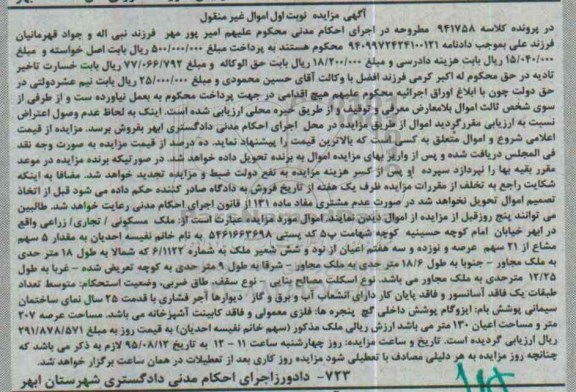 آگهی مزایده نوبت اول اموال غیر منقول
در پرونده کلاسه ۹۴۱۷۵۸ مطروحه در اجرای احکام مدنی محکوم علیهم امیر پور مهر فرزند نبی اله و جواد قهرمانیان
فرزند علی بموجب دادنامه ۹۴۰۹۹۷۲۴۲۴۱۰۰۱۲۱ محکوم هستند به پرداخت مبلغ ۵۰۰/۰۰۰/۰۰۰ ریال بابت اصل خواسته و مبلغ
۱۵/۰۴۰/۰۰۰ ریال بابت هزینه دادرسی و مبلغ ۱۸/۲۰۰/۰۰۰ ریال بابت حق الوکاله و مبلغ ۷۷/۰۶۶/۷۹۲ ریال بابت خسارت تاخیر
تادیه در حق محکوم له اکبر کرمی فرزند افضل با وکالت آقای حسین محمودی و مبلغ ۲۵/۰۰۰/۰۰۰ ریال بابت نیم عشردولتی در
حق دولت چون با ابلاغ اوراق اجرائیه محکوم علیهم هیچ اقدامی در جهت پرداخت محکوم به بعمل نیاورده ست و از طرفی از
سوی شخص ثالث اموال بلامعارض معرفی و توقیف و از طریق خبره محلی ارزیابی شده است. اینک به لحاظ عدم وصول اعتراض
نسبت به ارزیابی مقررگردید اموال از طریق مزایده در محل اجرای احکام مدنی دادگستری ابهر بفروش برسد. مزایده از قیمت
اعلامی شروع و اموال متعلق به کسی است که بالاترین قیمت را پیشنهاد نماید. ده درصد از قیمت مزایده به صورت وجه نقد
فی المجلس دریافت شده و پس از واریز بهای مزایده اموال به برنده تحویل داده خواهد شد. در صورتیکه برنده مزایده در موعد
مقرر بقیه بها را نپردازد سپرده او پس از کسر هزینه مزایده به نفع دولت ضبط و مزایده تجدید خواهد شد. مضافا به اینکه
شکایت راجع به تخلف از مقررات مزایده ظرف یک هفته از تاریخ فروش به دادگاه صادر کننده حکم داده می شود قبل از اتخاذ
تصمیم اموال تحویل نخواهد شد در صورت عدم مشتری مفاد ماده ۱۳۱ از قانون اجرای احکام مدنی رعایت خواهد شد. طالبین
می توانند پنج روزقبل از مزایده از اموال دیدن نمایند. اموال مورد مزایده عبارت است از: ملک مسکونی / تجاری/ زراعی واقع
در ابهر خیابان امام کوچه حسینیه کوچه شهامت پ۵ کد پستی ۵۴۶۱۶۶۳۶۹۸ به نام خانم نفیسه احدیان به مقدار ۵ سهم
مشاع از ۲۱ سهم عرصه و نوزده و سه هفتم اعیان از نود و شش شعیر ملک به شماره ۶/۱۱۲۲ که شمالا به طول ۱۸ متر حدی
به ملک مجاور - جنوبا به طول ۱۸/۶ متر حدی به ملک مجاور - شرقا به طول ۹ متر حدی به کوچه تعریض شده - غربا به طول
۱۲/۲۵ مترحدی به ملک مجاور می باشد. نوع اسکلت مصالح بنایی - نوع سقف، طاق ضربی، وضعیت استحکام: متوسط تعداد
طبقات یک فاقد آسانسور و فاقد پایان کار دارای انشعاب آب و برق و گاز دیوارها آجر فشاری با قدمت ۲۵ سال نمای ساختمان
سیمانی پوشش بام: ایزوگام پوشش داخلی گچ پنجره ها: فلزی معمولی و فاقد کابینت آشپزخانه می باشد. مساحت عرصه ۲۰۷
متر و مساحت اعیان ۱۳۰ متر می باشد ارزش ریالی ملک مذکور (سهم خانم نفیسه احدیان) به قیمت روز به مبلغ ۲۹۱/۸۷۸/۵۷۱
ریال ارزیابی گردیده است. تاریخ و ساعت مزایده: روز چهارشنبه ساعت ۱۱ - ۱۲ به تاریخ ۹۵/۰۸/۱۲ لازم به ذکر می باشد که
چنانچه روز مزایده به هر دلیلی مصادف با تعطیلی شود مزایده روز کاری بعد از تعطیلات در همان ساعت برگزار خواهد شد.
۷۲۳- دادورزاجرای احکام مدنی دادگستری شهرستان ابهر